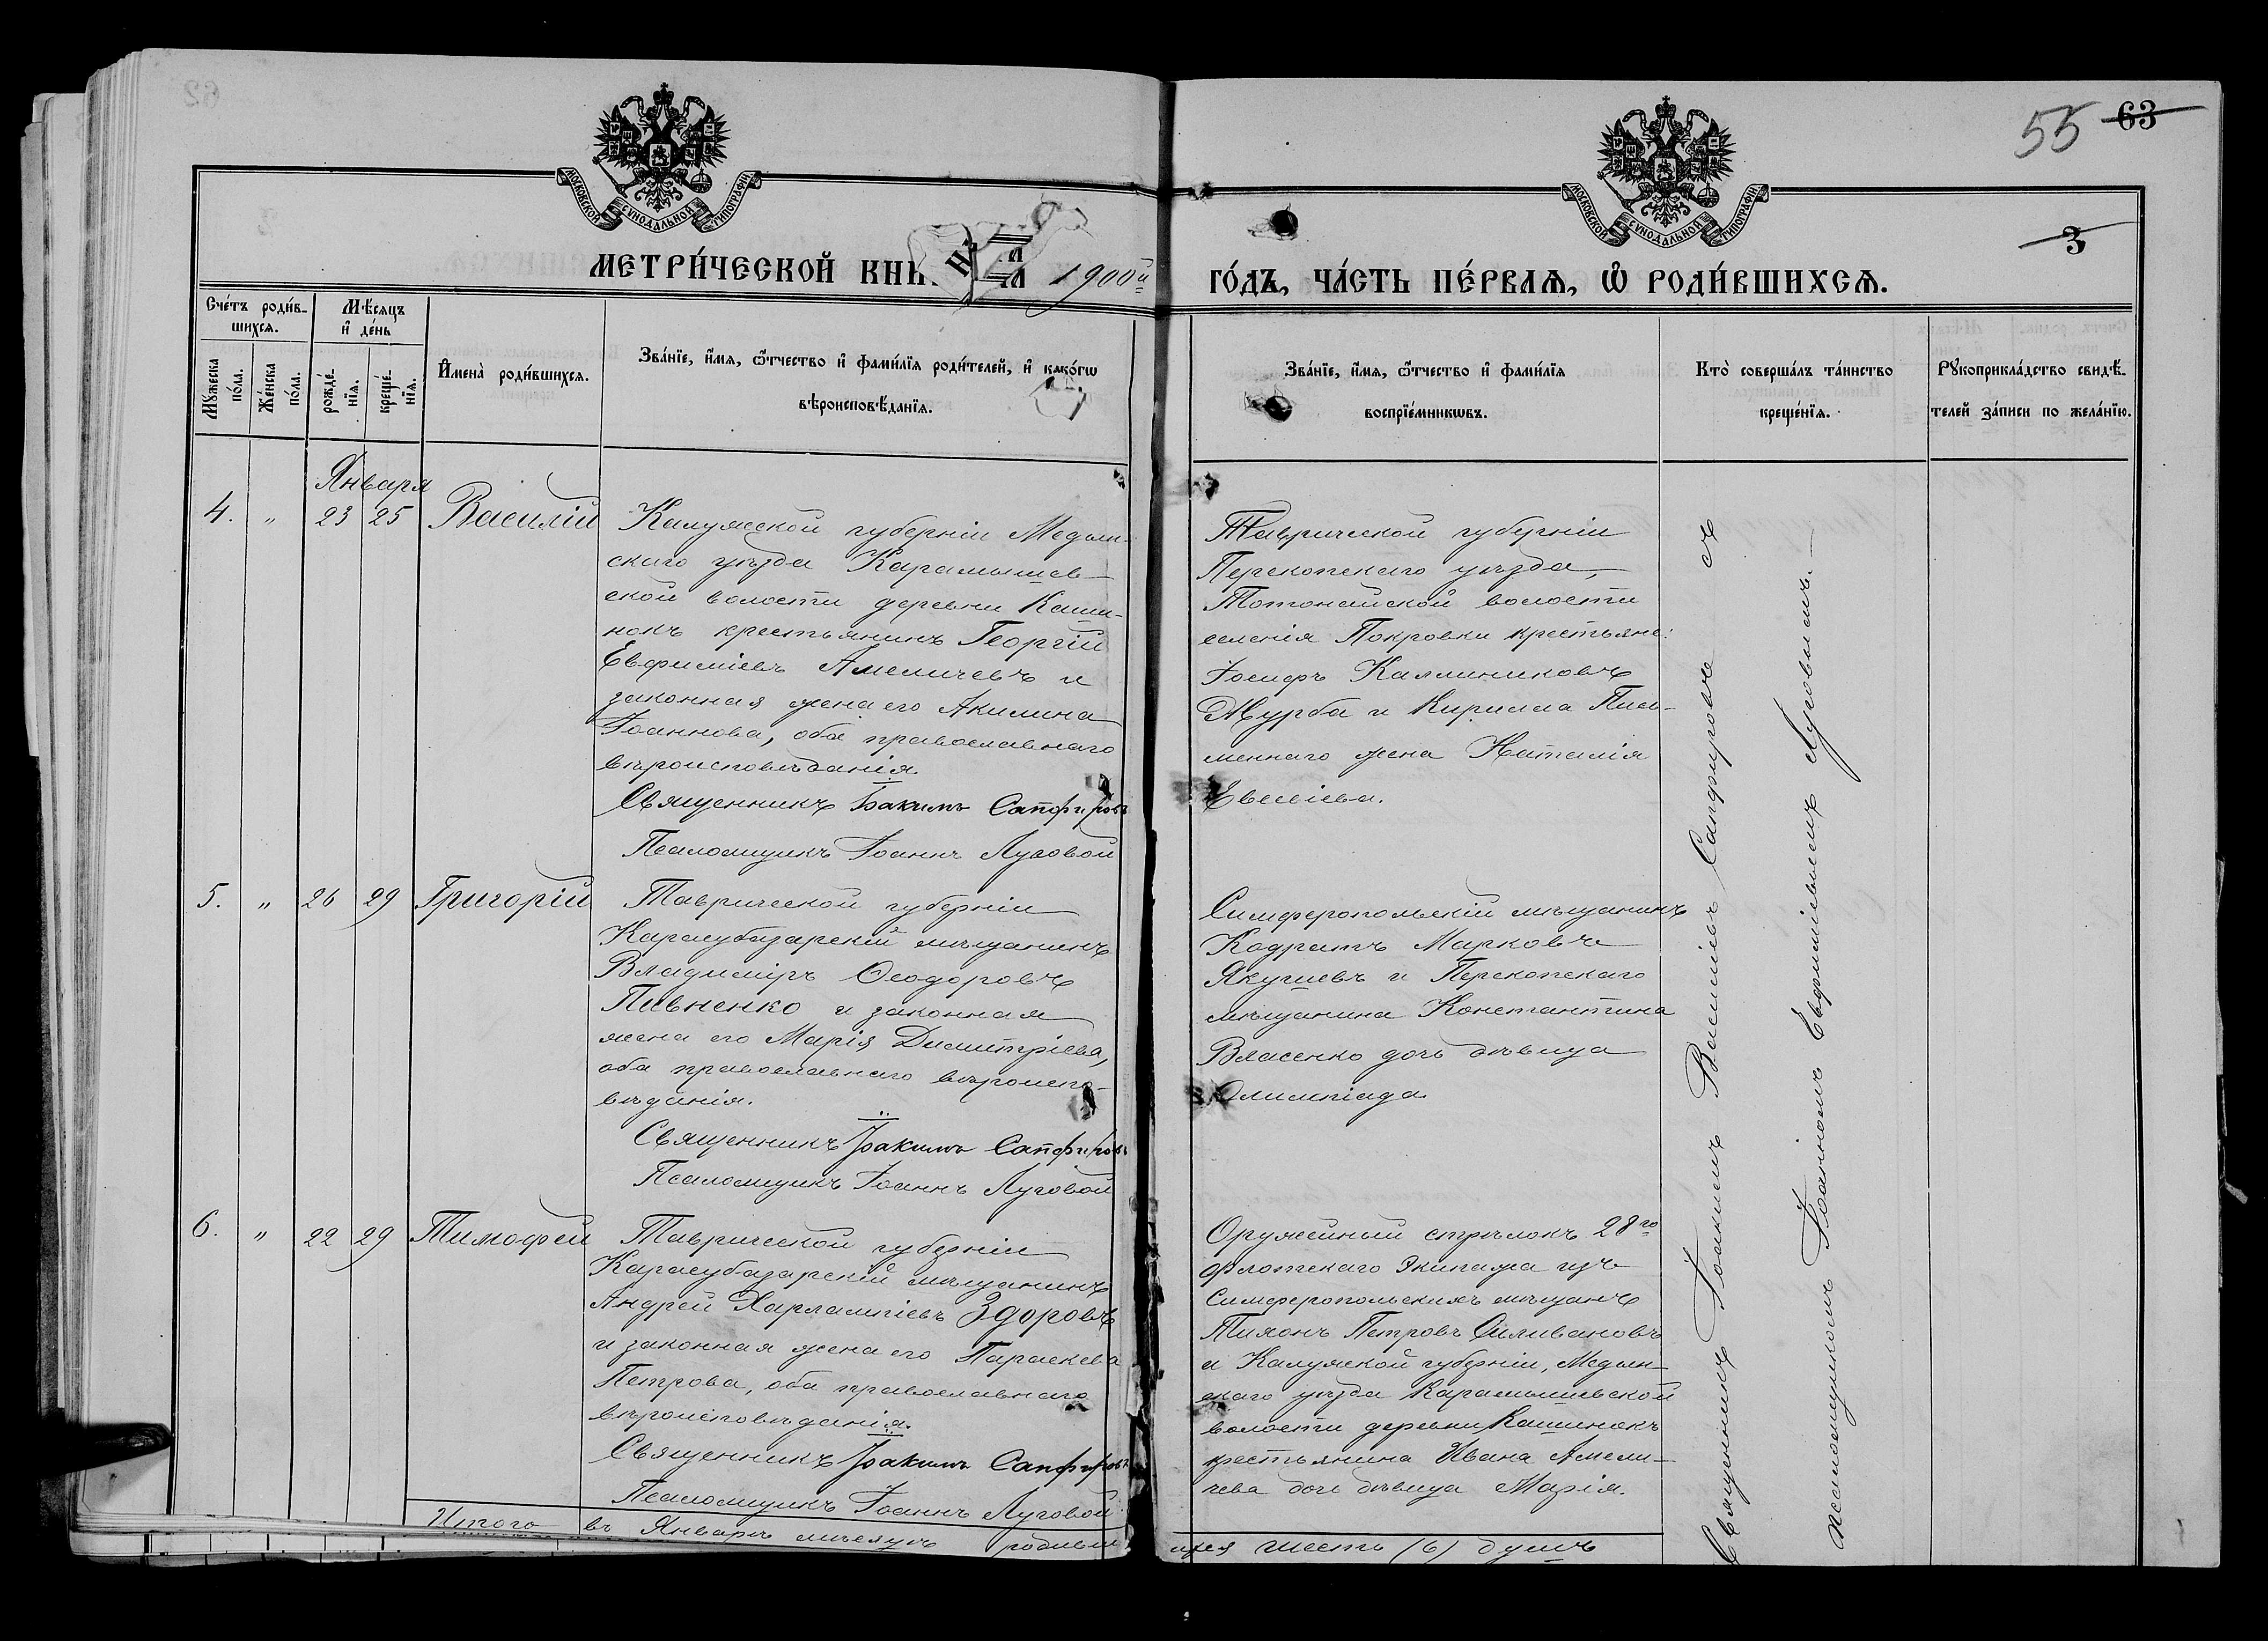 МОСКОВСКОЙ СѴНОДАЛЬНОЙ ТИПОГРАФІИ
МОСКОВСКОЙ СѴНОДАЛЬНОЙ ТИПОГРАФІИ
55 63
3
МЕТРИ́ЧЕСКОЙ КНИ НА 1900й
ГО́ДЪ, ЧА́СТЬ ПЕ́РВАЯ, Ѡ РОДИ́ВШИХСЯ.
Сче́тъ роди́в-
шихся.
Мꙋжеска
по́ла.
Же́нска
по́ла.
Мѣ́сяцъ
и҆ де́нь
рожде́-
нїя.
креще́-
нїя.
И҆мена̀ роди́вшихся.
Зва́нїе, и҆́мя, ѻ҆́тчество и҆ фами́лїя роди́телей, и҆ како́гѡ
вѣроисповѣ́данїя.
Зва́нїе, и҆́мя, ѻ҆́тчество и҆ фами́лїя
воспрїе́мникѡвъ.
Кто̀ соверша́лъ та́инство
креще́нїя.
Рꙋкоприкла́дство свидѣ́-
телей за́писи по жела́нїю.
Января
4. " 23 25 Василій
Калужской губерніи Медын-
скаго уѣзда Карамышев-
ской волости деревни Каши-
нокъ крестьянинъ Георгій
Евфиміевъ Амеличевъ и
законная жена его Акилина
Іоаннова, оба православнаго
вѣроисповѣданія.
Священникъ Іоакимъ Сапфировъ
Псаломщикъ Іоаннъ Луговой
Таврической губерніи
Перекопскаго уѣзда,
Тотонайской волости
селенія Покровки крестьяне:
Іосифъ Каллиниковъ
Журба и Кирилла Пись-
меннаго жена Наталія
Евсевіева.
5. " 26 29 Григорій
Таврической губерніи
Карасубазарскій мѣщанинъ
Владиміръ Ѳеодоровъ
Пивненко и законная
жена его Марія Димитріева,
оба православнаго вѣроиспо-
вѣданія.
Священникъ Іоакимъ Сапфировъ
Псаломщикъ Іоаннъ Луговой
Симферопольскій мѣщанинъ
Кодратъ Марковъ
Якушевъ и Перекопскаго
мѣщанина Константина
Власенко дочь дѣвица
Олимпіада.
6. " 22 29 Тимофей
Таврической губерніи
Карасубазарскій мѣщанинъ
Андрей Харлампіевъ Здоровъ
и законная жена его Параскева
Петрова, оба православнаго
вѣроисповѣданія.
Священникъ Іоакимъ Сапфировъ
Псаломщикъ Іоаннъ Луговой
Оружейный стрѣлокъ 28го
флотскаго Экипажа изъ
Симферопольскихъ мѣщанъ
Тихонъ Петровъ Силивановъ
и Калужской губерніи, Медын-
скаго уѣзда Карамышевской
волости деревни Кашинокъ
крестьянина Ивана Амели-
чева дочь дѣвица Марія.
Священникъ Іоакимъ Василіевъ Сапфировъ съ
псаломщикомъ Іоанномъ Евфиміевымъ Луговымъ.
Итого въ Январѣ мѣсяцѣ родивши
ихся шесть (6) душъ